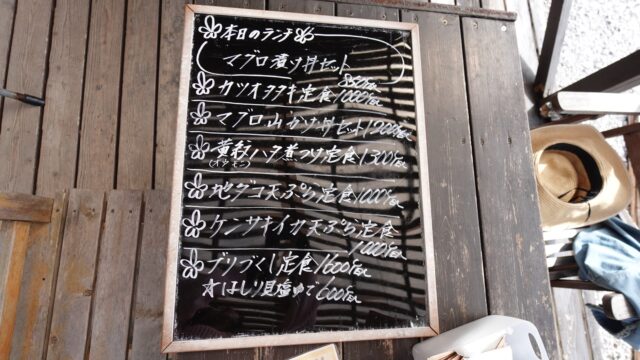 本日のランチ
マグロ漬け丼セット
850円
カツオタタキ定食1000円
マグロ山かけ丼セット1200円
黄鉱ハタ煮つけ定食1300円
地ダコ天ぷら定食1000円
ケンサキイカ天ぷら定食
1000円
ブリづくし定食1600円
☆はしり貝塩ゆで600円